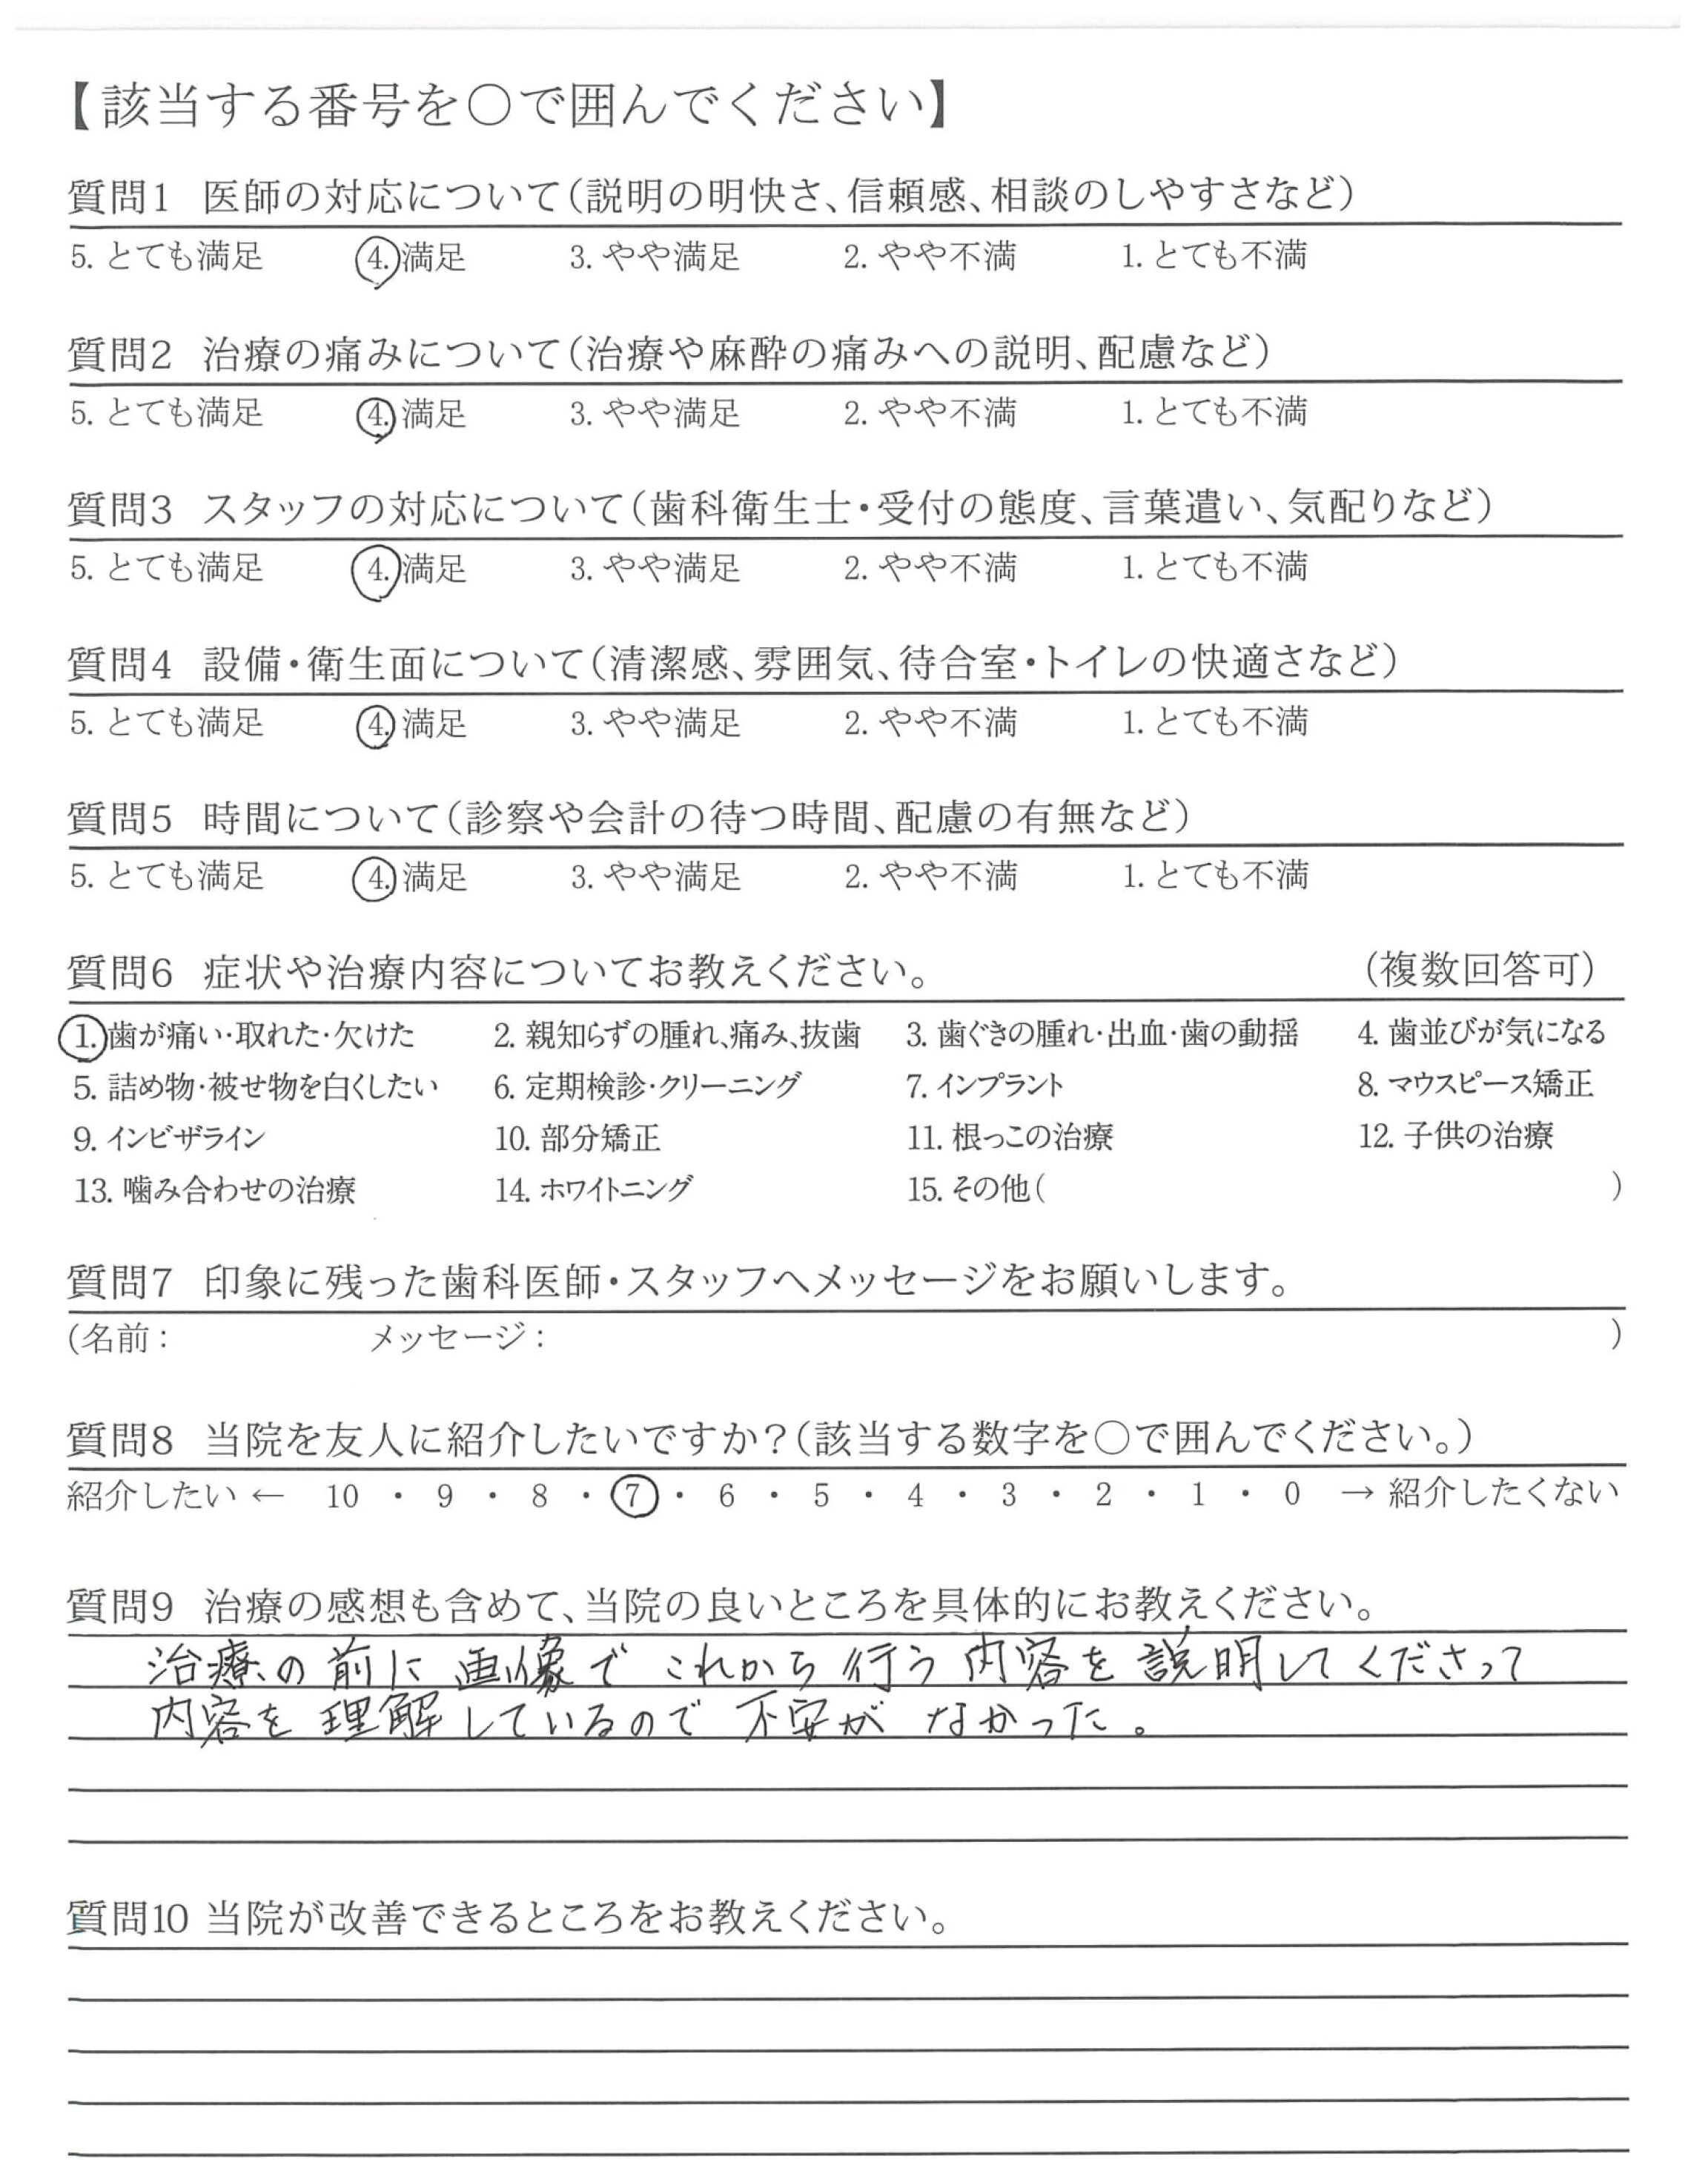 【該当する番号を○で囲んでください】
質問1 医師の対応について(説明の明快さ、信頼感、相談のしやすさなど)
5. とても満足 4. 満足 3. やや満足 2. やや不満 1. とても不満
質問2 治療の痛みについて(治療や麻酔の痛みへの説明、配慮など)
5. とても満足 4. 満足 3. やや満足 2. やや不満 1. とても不満
質問3 スタッフの対応について(歯科衛生士・受付の態度、言葉遣い、気配りなど)
5. とても満足 4. 満足 3. やや満足 2. やや不満 1. とても不満
質問4 設備・衛生面について(清潔感、雰囲気、待合室・トイレの快適さなど)
5. とても満足 4. 満足 3. やや満足 2. やや不満 1. とても不満
質問5 時間について(診察や会計の待つ時間、配慮の有無など)
5. とても満足 4. 満足 3. やや満足 2. やや不満 1. とても不満
質問6 症状や治療内容についてお教えください。 (複数回答可)
1. 歯が痛い・取れた・欠けた 2. 親知らずの腫れ、痛み、抜歯 3. 歯ぐきの腫れ・出血・歯の動揺 4. 歯並びが気になる
5. 詰め物・被せ物を白くしたい 6. 定期検診・クリーニング 7. インプラント 8. マウスピース矯正
9. インビザライン 10. 部分矯正 11. 根っこの治療 12. 子供の治療
13. 噛み合わせの治療 14. ホワイトニング 15. その他( )
質問7 印象に残った歯科医師・スタッフへメッセージをお願いします。
(名前: メッセージ: )
質問8 当院を友人に紹介したいですか?(該当する数字を○で囲んでください。)
紹介したい ← 10 ・ 9 ・ 8 ・ 7 ・ 6 ・ 5 ・ 4 ・ 3 ・ 2 ・ 1 ・ 0 → 紹介したくない
質問9 治療の感想も含めて、当院の良いところを具体的にお教えください。
治療の前に画像でこれから行う内容を説明してくださって
内容を理解しているので不安がなかった。
質問10 当院が改善できるところをお教えください。